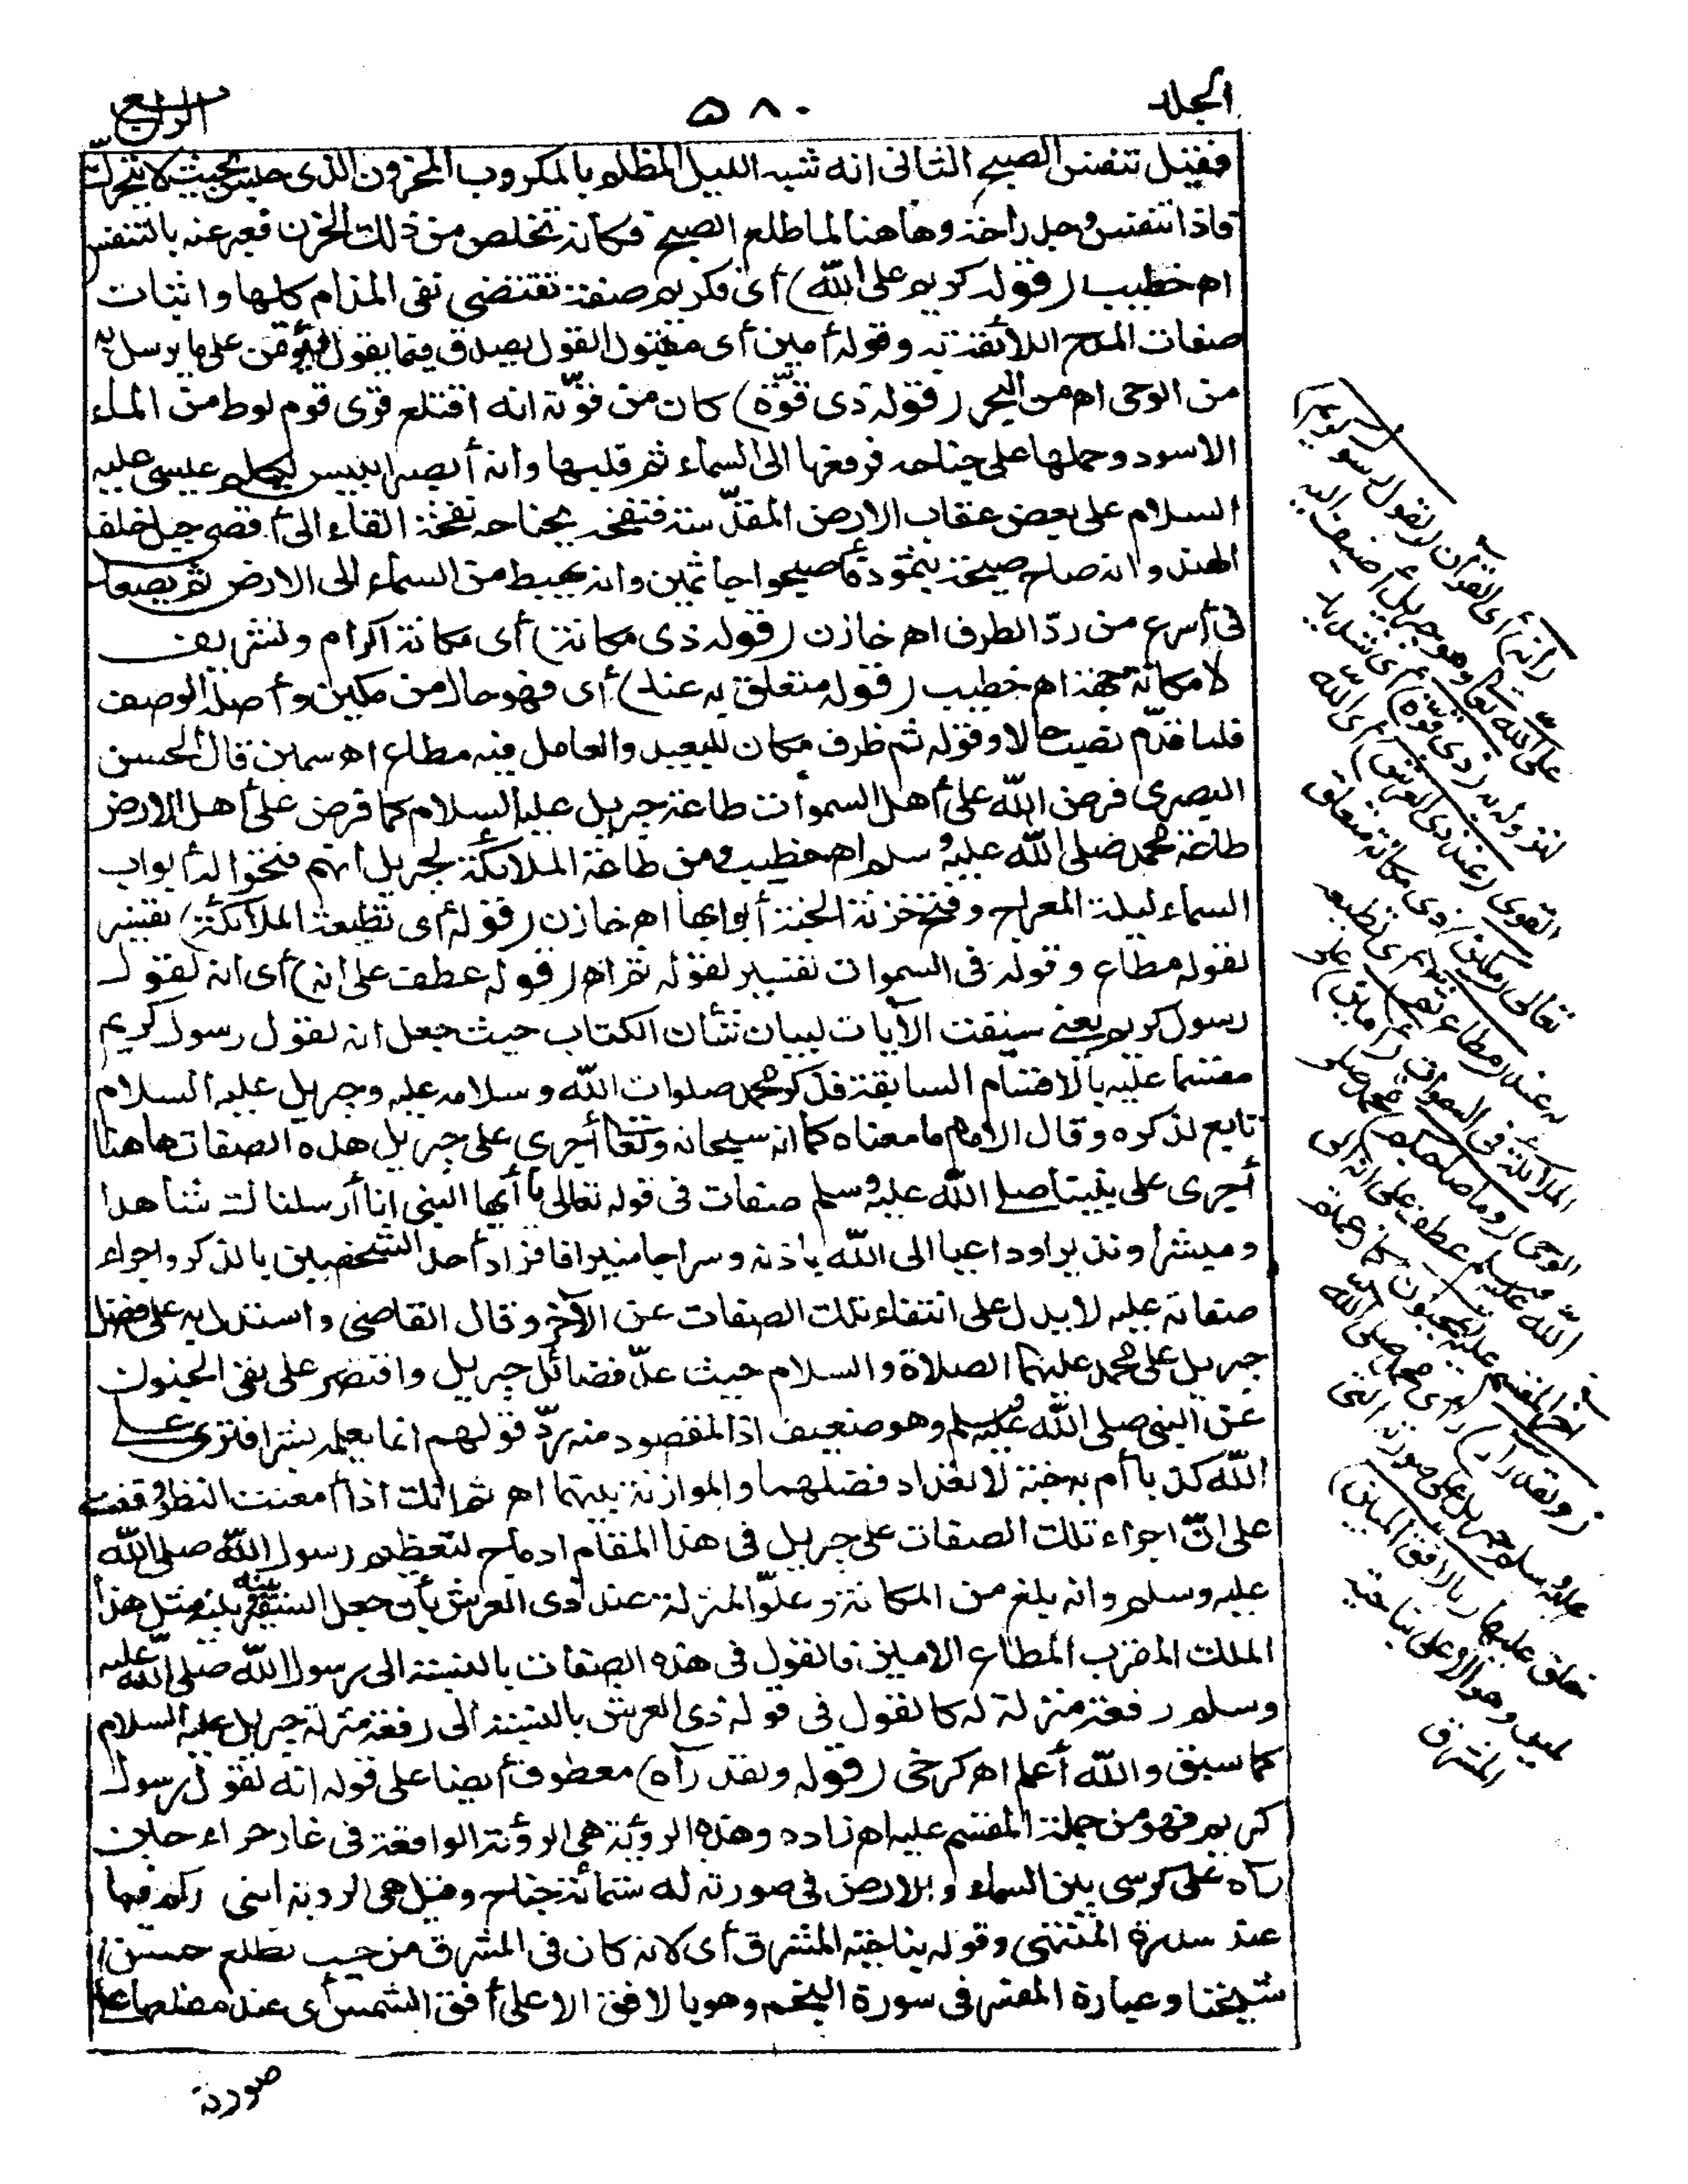 الجلد
٥٨٠
الرابع
فقيل تنفس الصبح الثانى انه شبه الليل المظلم بالمكروب المحزون الذى حبس بحيث لا يتحرك
فاذا تنفس وجد راحة وهاهنا لما طلع الصبح فكأنه تخلص من ذلك الحزن فعبر عنه بالتنفس
اه خطيب (قوله كريم على الله) أى فكريم صفة تقتضى نفى المذام كلها واثبات
صفات المدح اللائقة به وقوله أمين أى مقبول القول يصدق فيما يقول مؤتمن على ما يرسل به
من الوحى اه من البحر (قوله ذى قوّة) كان من قوّته انه اقتلع قرى قوم لوط من الماء
الاسود وحملها على جناحه فرفعها الى السماء ثم قلبها وأنه أبصر ابليس يكلم عيسى عليه
السلام على بعض عقاب الارض المقدّسة فنفخه بجناحه نفخة القاه الى أقصى جبل خلف
الهند وانه صاح صيحة بثمود فأصبحوا جاثمين وانه يهبط من السماء الى الارض ثم يصعد
فى أسرع من ردّ الطرف اه خازن (قوله ذى مكانة) أى مكانة اكرام وتشريف
لا مكانة جهة اه خطيب (قوله متعلق به عند) أى فهو حال من مكين وأصله الوصف
فلما قدّم نصب حالا وقوله ثم ظرف مكان للبعيد والعامل فيه مطاع اه سمين قال الحسن
البصرى فرض الله على أهل السموات طاعة جبريل عليه السلام كما فرض على أهل الارض
طاعة محمد صلى الله عليه وسلم اه خطيب ومن طاعة الملائكة لجبريل أنهم فتحوا له أبواب
السماء ليلة المعراج وفتح خزنة الجنة أبوابها اه خازن (قوله أى تطيعه الملائكة) تفسير
لقوله مطاع وقوله فى السموات تفسير لقوله ثم اه (قوله عطف على انه) أى انه لقول
رسول كريم يعنى سيقت الآيات لبيان شأن الكتاب حيث جعل انه لقول رسول كريم
مقسما عليه بالاقسام السابقة فذكر محمد صلوات الله وسلامه عليه وجبريل عليه السلام
تابع لذكره وقال الامام ما معناه كما انه سبحانه وتعا أجرى على جبريل هذه الصفات هاهنا
أجرى على نبينا صلى الله عليه وسلم صفات فى قوله تعالى يا أيها النبى انا أرسلناك شاهدا
ومبشرا ونذيرا وداعيا الى الله باذنه وسراجا منيرا فافراد أحد الشخصين بالذكر واجراء
صفاته عليه لا يدل على انتفاء تلك الصفات عن الآخر وقال القاضى واستدل به على فضل
جبريل على محمد عليهما الصلاة والسلام حيث عدّ فضائل جبريل واقتصر على نفى الجنون
عن النبى صلى الله عليه وسلم وهو ضعيف اذ المقصود منه ردّ قولهم انما يعلمه بشر افترى على
الله كذبا أم به جنة لا تعداد فضلهما والموازنة بينهما اه ثم انك اذا أمعنت النظر وقفت
على انّ اجراء تلك الصفات على جبريل فى هذا المقام ادماج لتعظيم رسول الله صلى الله
عليه وسلم وانه بلغ من المكانة وعلوّ المنزلة عند ذى العرش بأن جعل السفير بينه وبينه مثل هذا
الملك المقرب المطاع الامين فالقول فى هذه الصفات بالنسبة الى رسول الله صلى الله عليه
وسلم رفعة منزلة له كالقول فى قوله ذى العرش بالنسبة الى رفعة منزلة جبريل عليه السلام
كما سبق والله أعلم اه كرخى (قوله ولقد رآه) معطوف أيضا على قوله انه لقول رسول
كريم فهو من جملة المقسم عليه اه زاده وهذه الرؤية هى الرؤية الواقعة فى غار حراء حين
رآه على كرسى بين السماء والارض فى صورته له ستمائة جناح وقيل هى الرؤية التى رآه فيها
عند سدرة المنتهى وقوله بناحية المشرق أى لانه كان فى المشرق من حيث تطلع الشمس اه
شيخنا وعبارة المفسر فى سورة النجم وهو بالافق الاعلى أفق الشمس أى عند مطلعها على
صورته
(انه) أى القرآن (لقول رسول كريم)
على الله تعالى وهو جبريل أضيف اليه
لنزوله به (ذى قوّة) أى شديد
القوى (عند ذى العرش) أى الله
تعالى (مكين) ذى مكانة متعلق
به عند (مطاع ثم) أى تطيعه
الملائكة فى السموات (أمين) على
الوحى (وما صاحبكم) محمد صلى
الله عليه وسلم عطف على انه الى
آخر المقسم عليه (بمجنون) كما زعمتم
(ولقد رآه) رأى محمد صلى الله
عليه وسلم جبريل على صورته التى
خلق عليها (بالافق المبين)
البين وهو الاعلى بناحية
المشرق